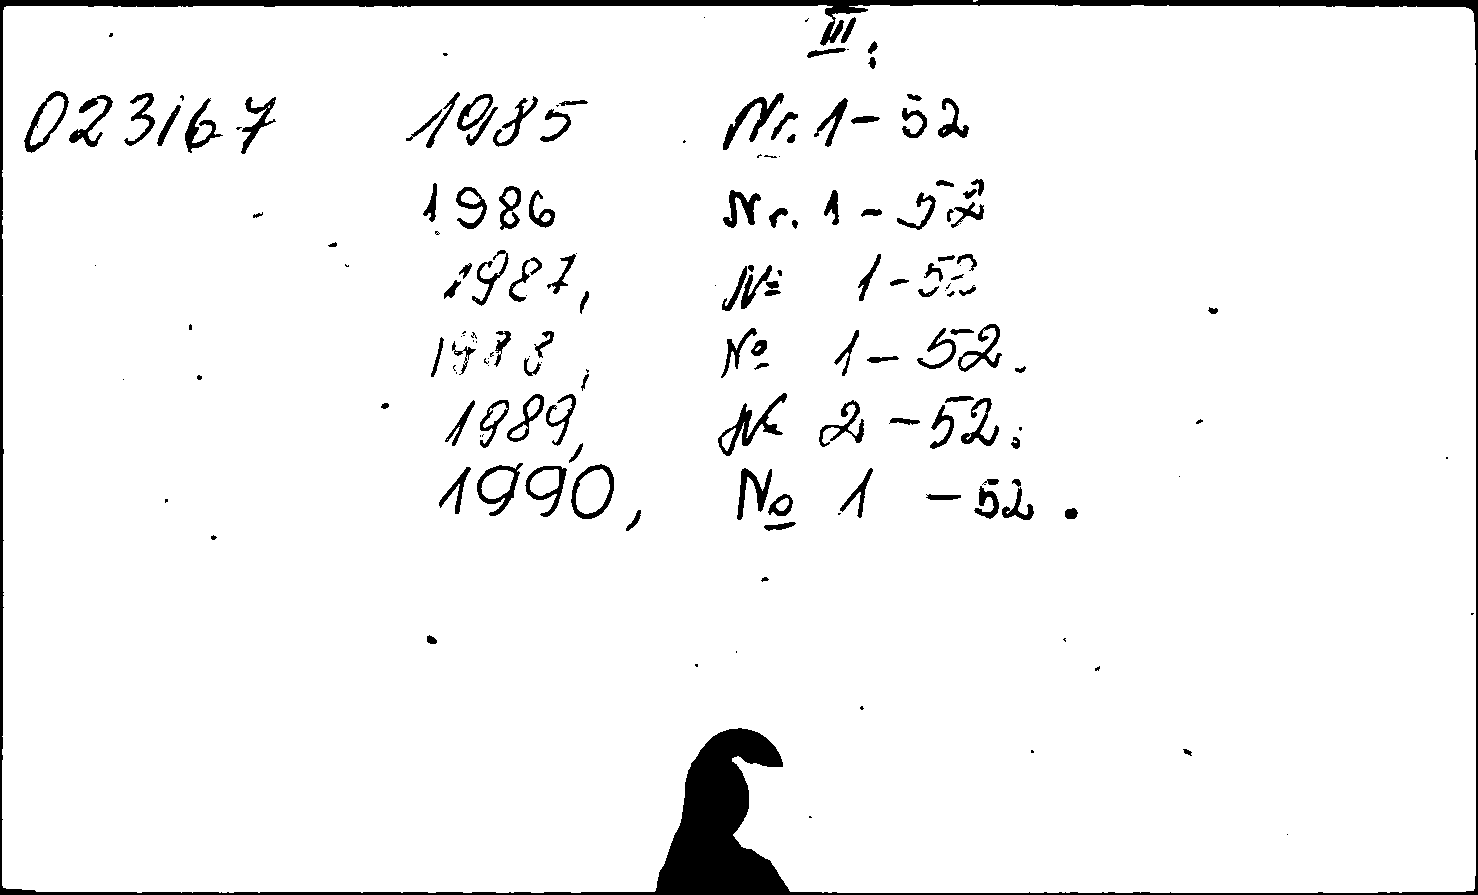 III.
023167 1985 Nr. 1-52
1986 Nr. 1-52
1987, № 1-52
1988, № 1-52.
1989, № 2-52.
1990, № 1-52.